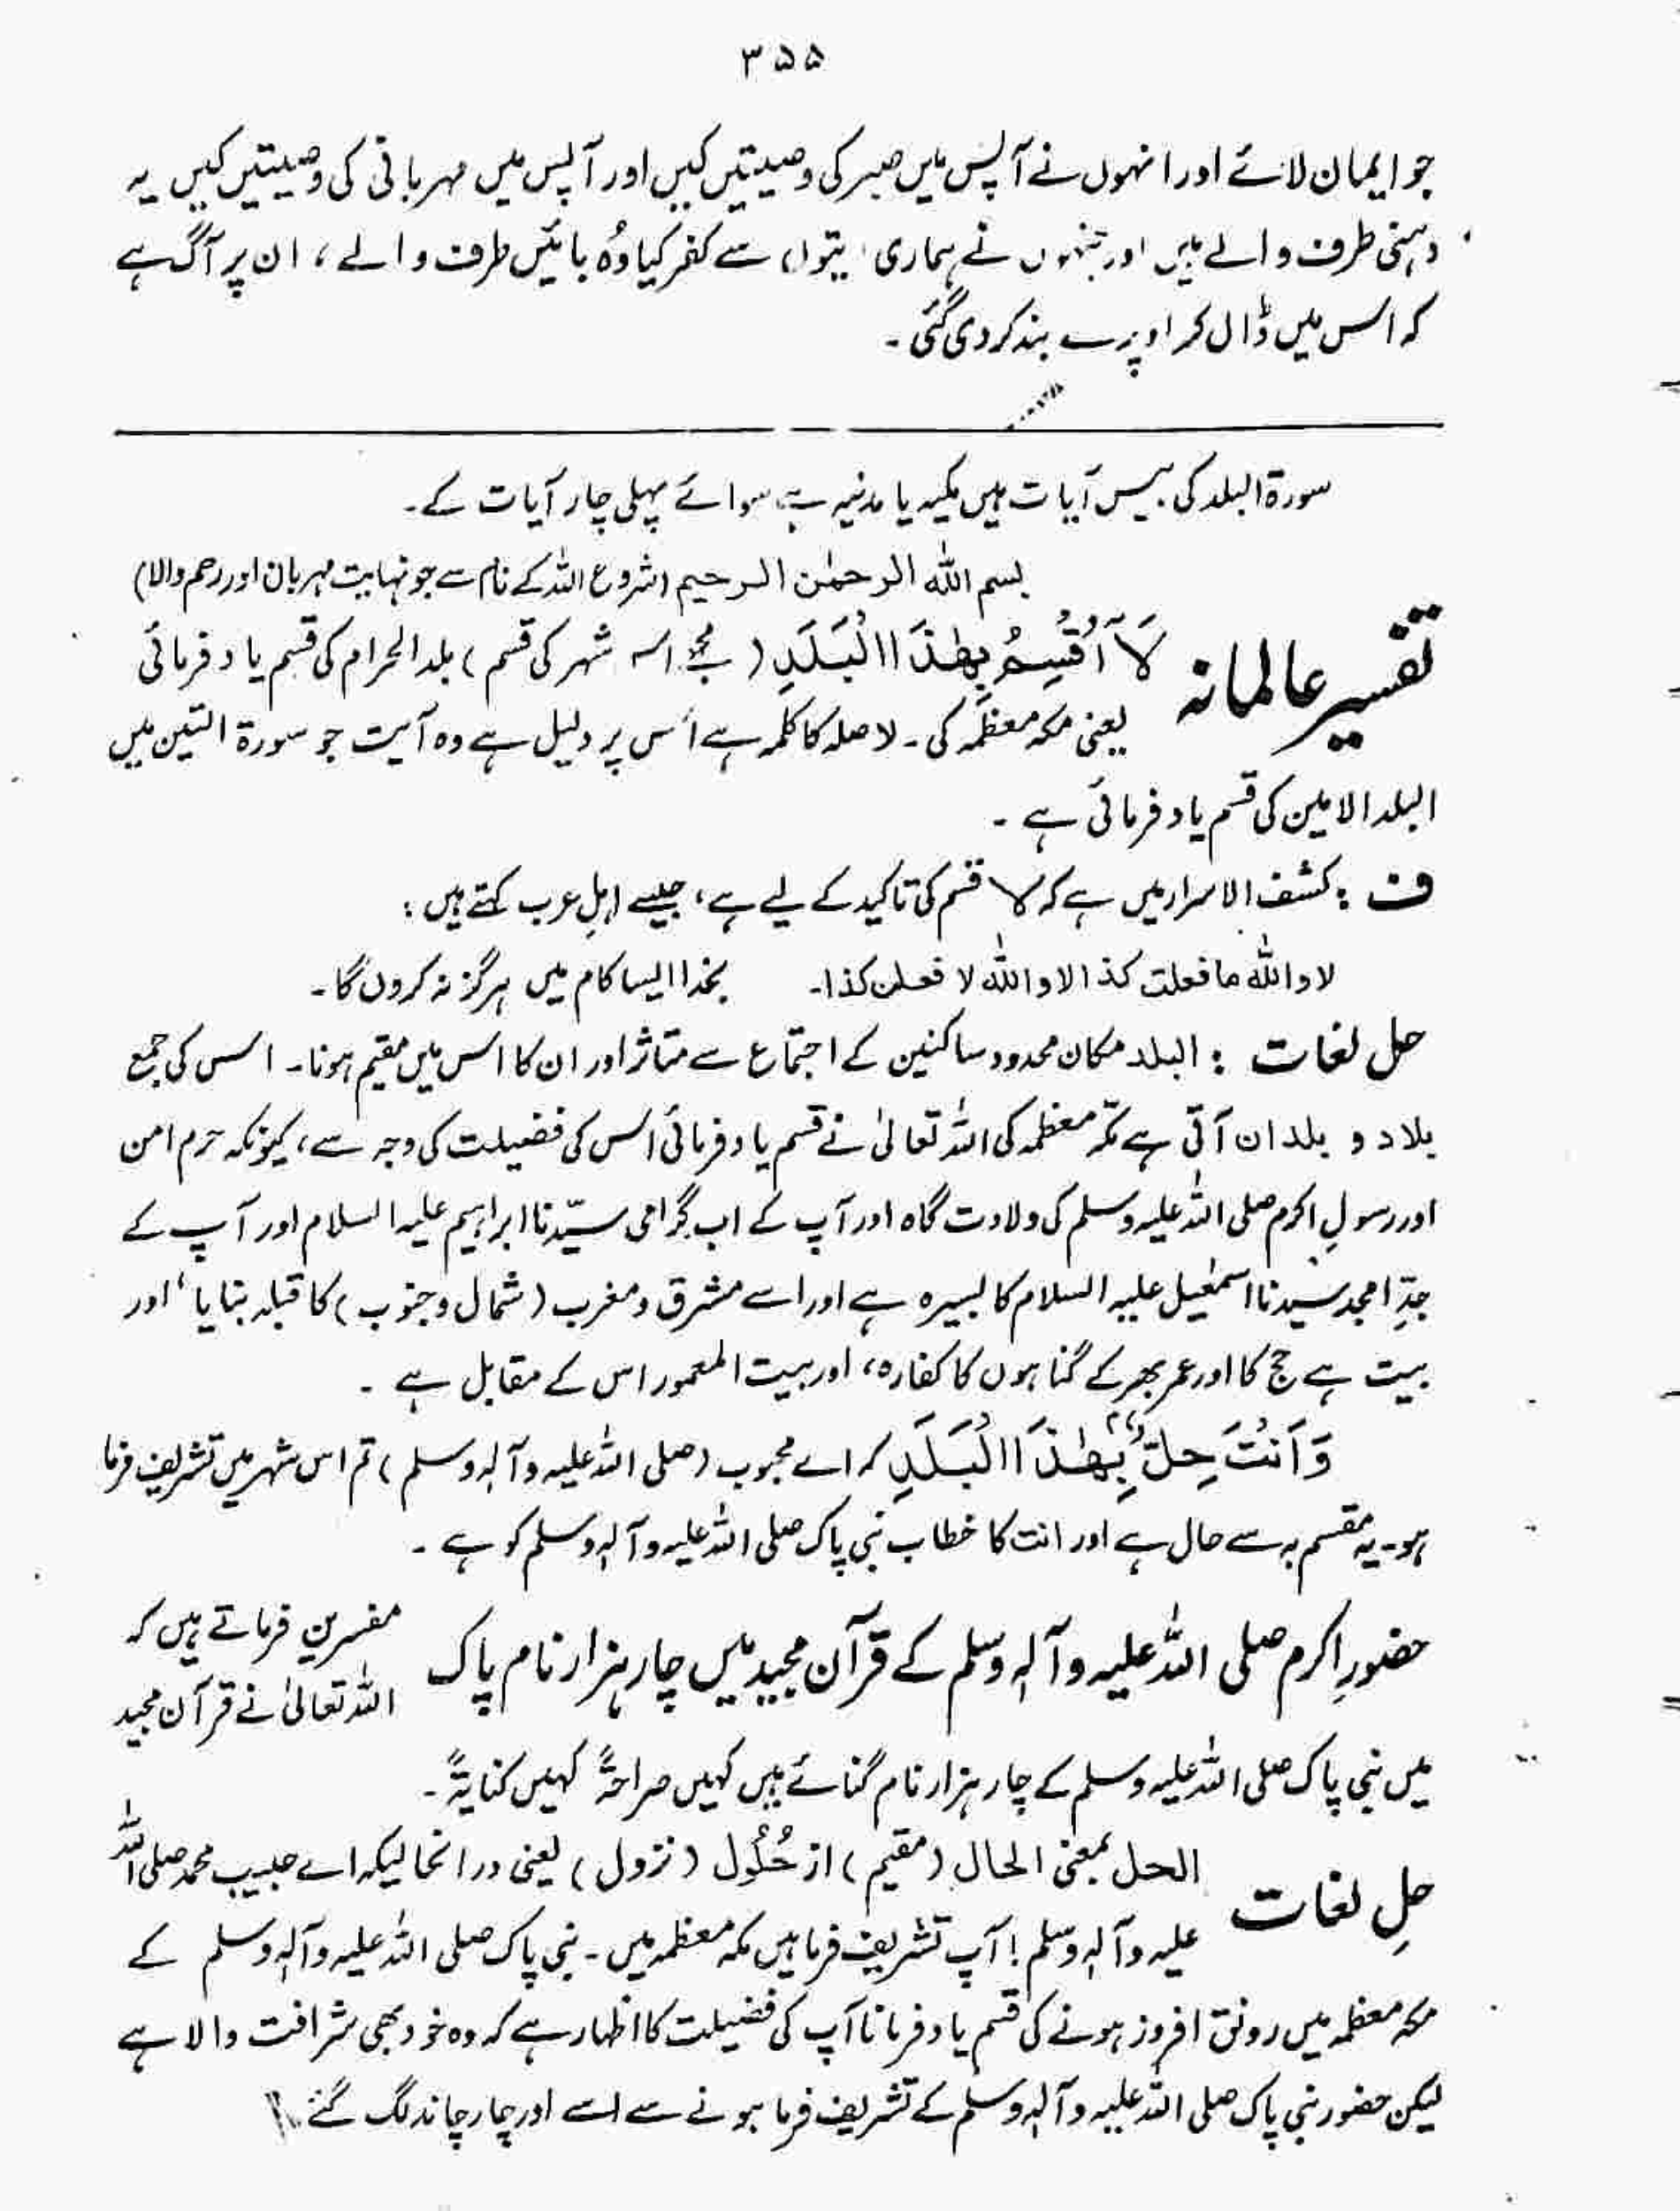 ۳۵۵
جو ایمان لائے اور انہوں نے آپس میں صبر کی وصیتیں کیں اور آپس میں مہربانی کی وصیتیں کیں یہ
دہنی طرف والے ہیں اور جنہوں نے ہماری آیتوں سے کفر کیا وُہ بائیں طرف والے ، ان پر آگ ہے
کہ اس میں ڈال کر اوپر سے بند کر دی گئی ۔
سورۃ البلد کی بیس آیات ہیں مکیہ یا مدنیہ ہے سوائے پہلی چار آیات کے ۔
بسم اللّٰہ الرحمٰن الرحیم (شروع اللّٰہ کے نام سے جو نہایت مہربان اور رحم والا)
تفسیر عالمانہ
لَآ اُقْسِمُ بِھٰذَا الْبَلَدِ (مجھے اس شہر کی قسم) بلد الحرام کی قسم یاد فرمائی
یعنی مکہ معظمہ کی ۔ لا صلہ کا کلمہ ہے اُس پر دلیل ہے وہ آیت جو سورۃ التین میں
البلد الامین کی قسم یاد فرمائی ہے ۔
ف : کشف الاسرار میں ہے کہ لا قسم کی تاکید کے لیے ہے ، جیسے اہلِ عرب کہتے ہیں :
لا واللّٰہ ما فعلت کذا لا واللّٰہ لا فعلن کذا ۔ بخدا ایسا کام میں ہرگز نہ کروں گا ۔
حل لغات : البلد مکان محدود ساکنین کے اجتماع سے متاثر اور ان کا اس میں مقیم ہونا ۔ اس کی جمع
بلاد و بلدان آتی ہے مکّہ معظمہ کی اللّٰہ تعالیٰ نے قسم یاد فرمائی اس کی فضیلت کی وجہ سے ، کیونکہ حرم امن
اور رسولِ اکرم صلی اللّٰہ علیہ وسلم کی ولادت گاہ اور آپ کے اب گرامی سیّدنا ابراہیم علیہ السلام اور آپ کے
جدِّ امجد سیدنا اسمٰعیل علیہ السلام کا بسیرہ ہے اور اسے مشرق و مغرب (شمال و جنوب) کا قبلہ بنایا ، اور
بیت ہے حج کا اور عمر بھر کے گناہوں کا کفارہ ، اور بیت المعمور اس کے مقابل ہے ۔
وَ اَنْتَ حِلٌّۢ بِھٰذَا الْبَلَدِ کہ اے محبوب (صلی اللّٰہ علیہ وآلہٖ وسلم) تم اس شہر میں تشریف فرما
ہو ۔ یہ مقسم بہ سے حال ہے اور انت کا خطاب نبی پاک صلی اللّٰہ علیہ وآلہٖ وسلم کو ہے ۔
حضورِ اکرم صلی اللّٰہ علیہ وآلہٖ وسلم کے قرآن مجید میں چار ہزار نام پاک
مفسرین فرماتے ہیں کہ
اللّٰہ تعالیٰ نے قرآن مجید
میں نبی پاک صلی اللّٰہ علیہ وسلم کے چار ہزار نام گنائے ہیں کہیں صراحۃً کہیں کنایۃً ۔
حلِ لغات
الحل بمعنی الحال (مقیم) از حُلُول (نزول) یعنی درانحالیکہ اے حبیب محمد صلی اللّٰہ
علیہ وآلہٖ وسلم ! آپ تشریف فرما ہیں مکہ معظمہ میں ۔ نبی پاک صلی اللّٰہ علیہ وآلہٖ وسلم کے
مکہ معظمہ میں رونق افروز ہونے کی قسم یاد فرمانا آپ کی فضیلت کا اظہار ہے کہ وہ خود بھی شرافت والا ہے
لیکن حضور نبی پاک صلی اللّٰہ علیہ وآلہٖ وسلم کے تشریف فرما ہونے سے اسے اور چار چاند لگ گئے